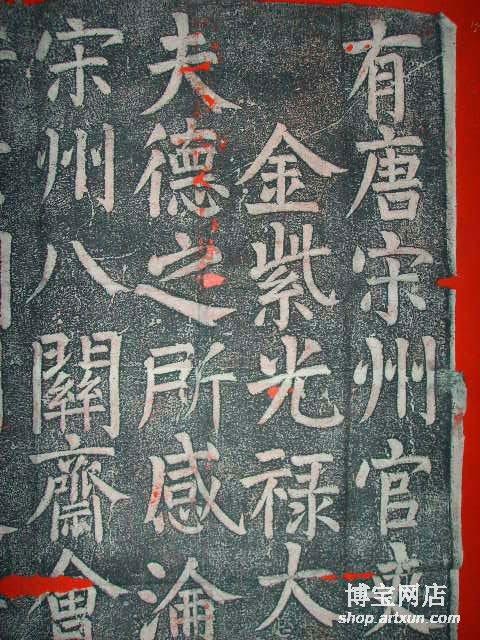 有唐宋州官
金紫光禄大
夫德之所感
宋州八關齋會
博宝网店
shop.artxun.com